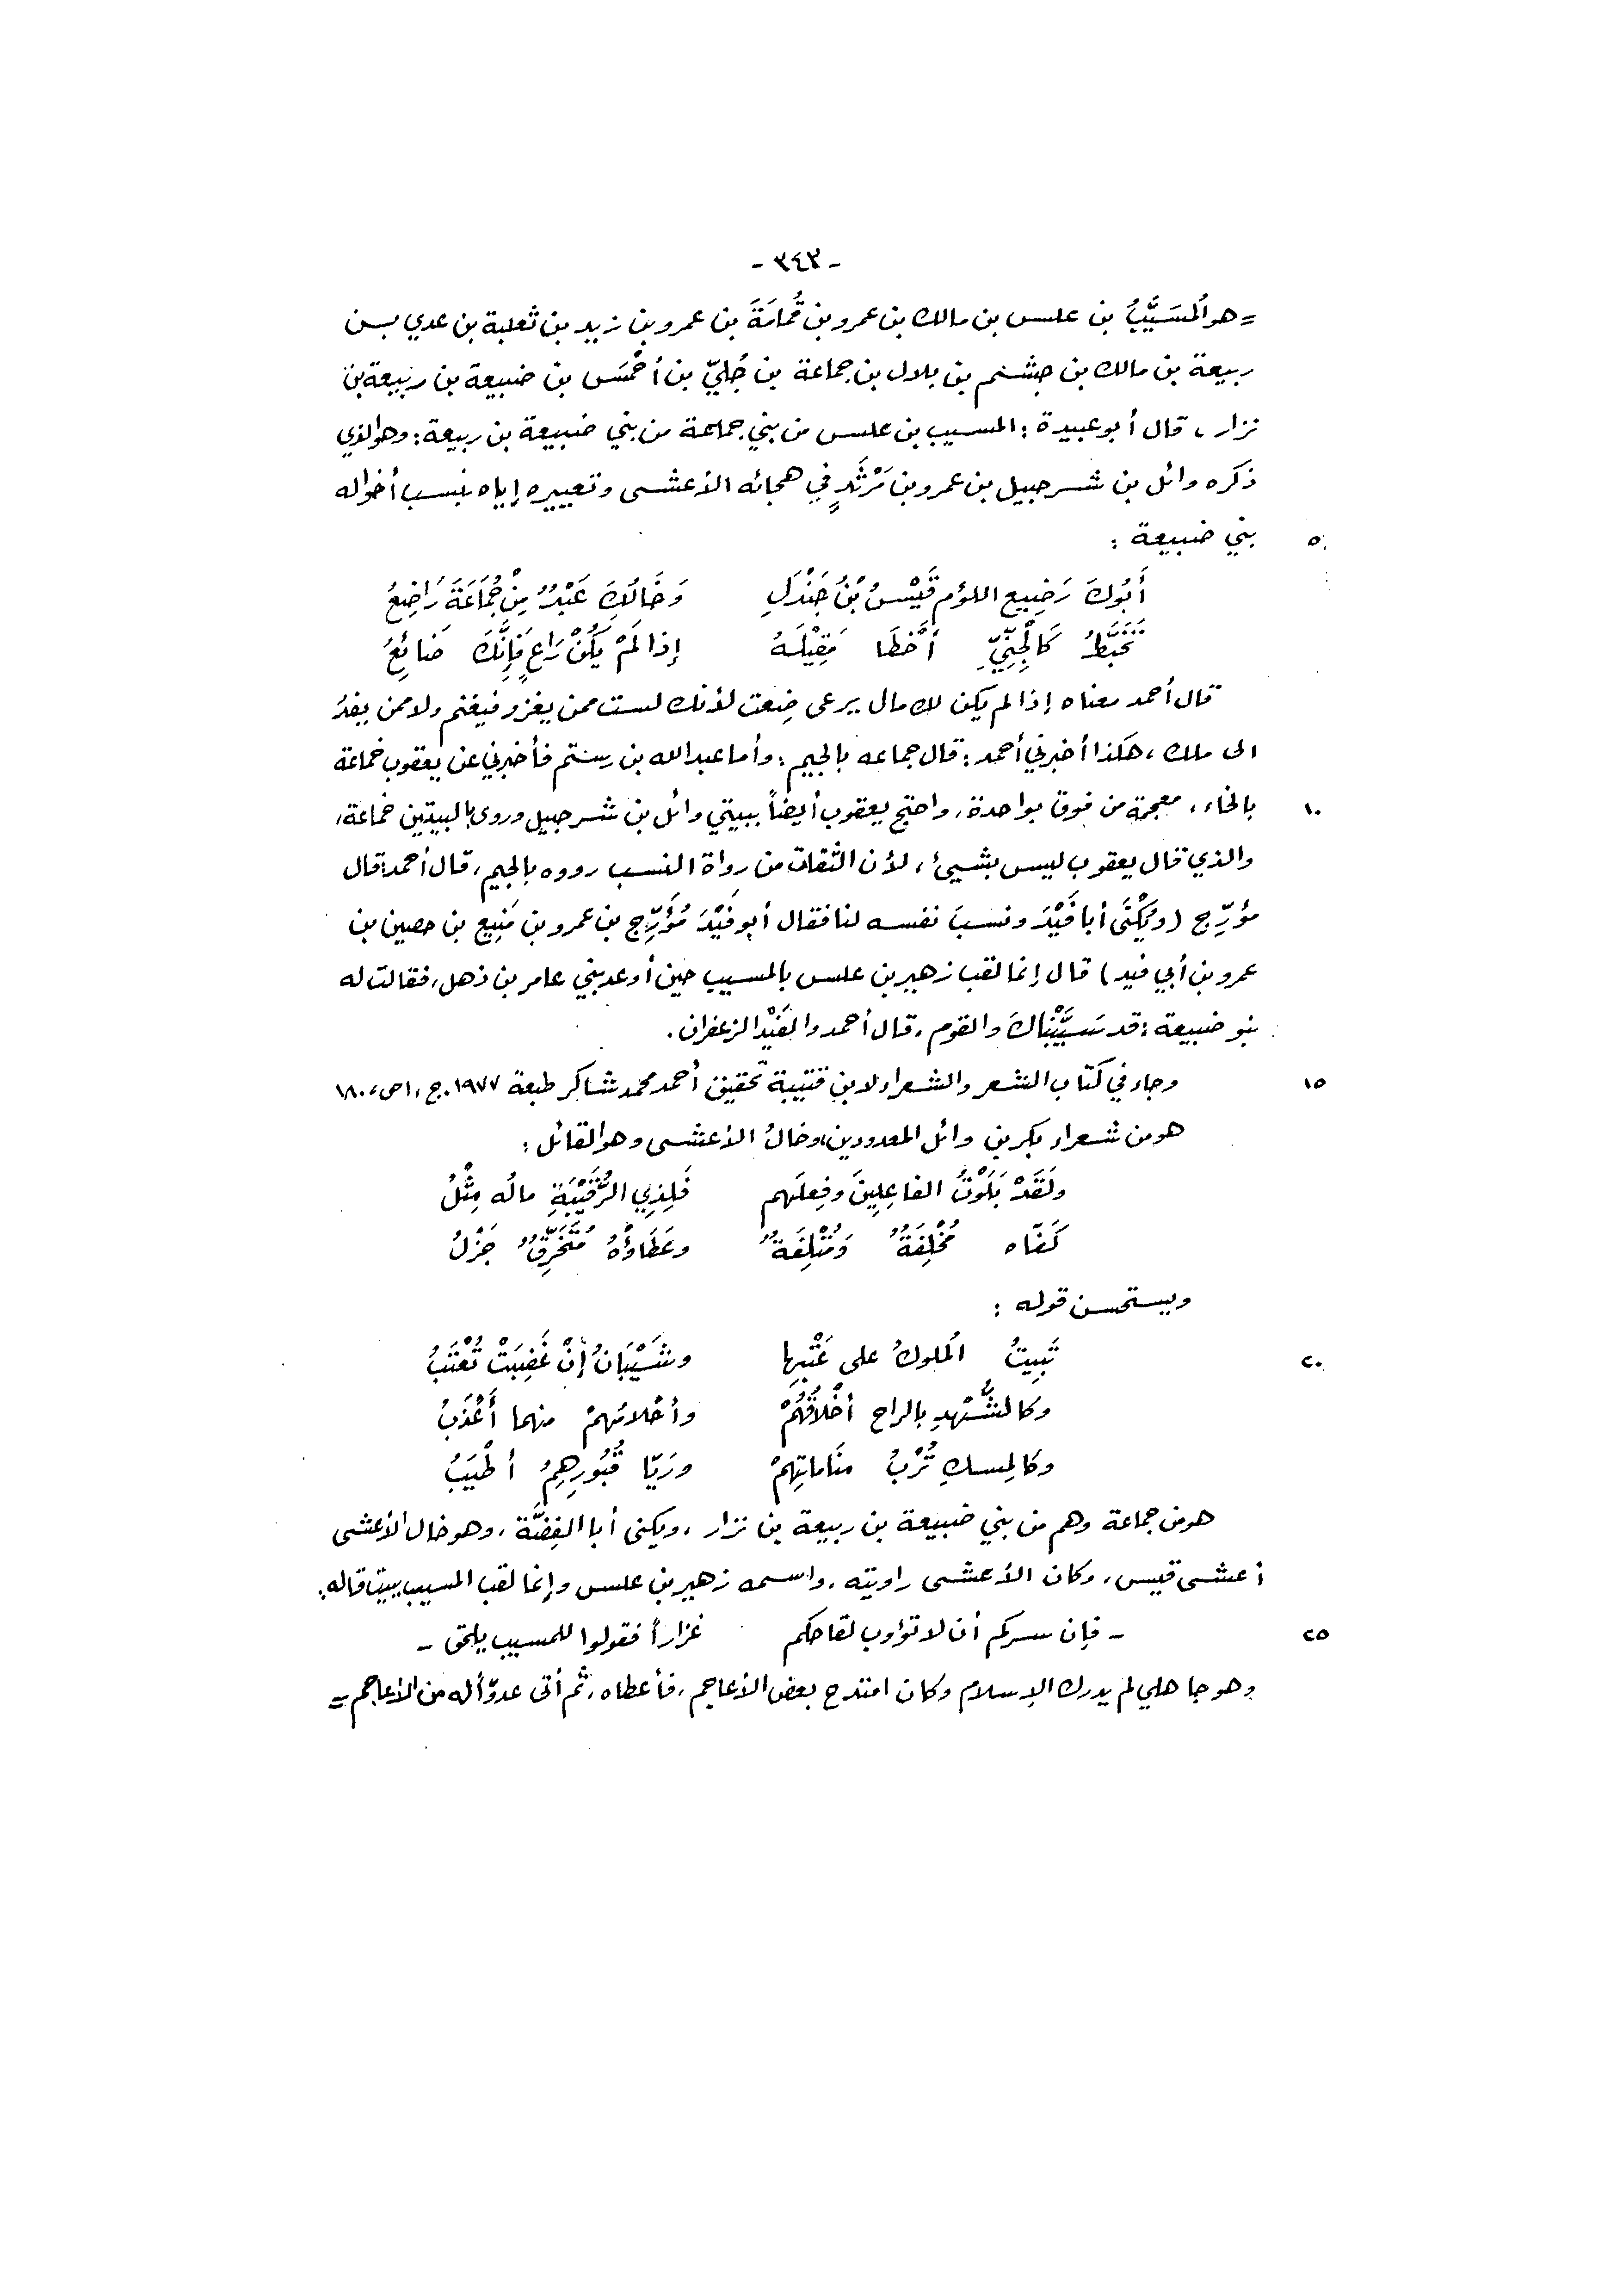 - ٣٤٣ -
= هو المُسَيَّبُ بن علس بن مالك بن عمرو بن قُمامَةَ بن عمرو بن زيد بن ثعلبة بن عدي بن
ربيعة بن مالك بن جشم بن بلال بن جماعة بن جُليّ بن أحْمَسَ بن ضبيعة بن ربيعة بن
نزار ، قال أبو عبيدة : المسيب بن علس من بني جماعة من بني ضبيعة بن ربيعة : وهو الذي
ذكره وائل بن شرحبيل بن عمرو بن مَرْثَدٍ في هجائه الأعشى وتعييره إياه بنسب أخواله
٥ بني ضبيعة :
أَبُوكَ رَضِيع اللؤم قَيْسُ بْنُ جَنْدَلِ وَخَالُكَ عَبْدٌ مِنْ جُمَاعَةَ رَاضِعُ
تَخَبَّطُ كَالْجِنِّيِّ أَخْطَا مَقِيْلَهُ إذا لَمْ يَكُنْ رَاعٍ فَإنَّكَ ضَائِعُ
قال أحمد معناه إذا لم يكن لك مال يرعى ضِعت لأنك لست ممن يغزو فيغنم ولا ممن يفدُ
الى ملك ، هكذا أخبرني أحمد : قال جماعه بالجيم : وأما عبدالله بن رستم فأخبرني عن يعقوب خماعة
١٠ بالخاء ، معجمة من فوق بواحدة ، واحتج يعقوب أيضاً ببيتي وائل بن شرحبيل وروى بالبيتين خماعة ،
والذي قال يعقوب ليس بشيئ ، لأن الثقات من رواة النسب رووه بالجيم ، قال أحمد : قال
مؤرِّج (ويُكْنَى أبا فَيْدَ ونسبَ نفسه لنا فقال أبو فَيْدَ مُؤَرِّج بن عمرو بن مَنِيع بن حصين بن
عمرو بن أبي فيد) قال إنما لقب زهير بن علس بالمسيب حين أوعد بني عامر بن ذهل ، فقالت له
بنو ضبيعة : قد سَيَّبْناكَ والقوم ، قال أحمد والفَيْد الزعفران .
١٥ وجاء في كتاب الشعر والشعراء لابن قتيبة تحقيق أحمد محمد شاكر طبعة ١٩٧٧ . ج ، ١ ص ، ١٨٠
هو من شعراء بكر بن وائل المعدودين ، وخالُ الأعشى وهو القائل :
ولَقَدْ بَلَوْتُ الفاعِلِينَ وفِعلَهم فَلِذِي الرُّقَيْبَةِ مالُه مِثْلُ
كَفّاه مُخْلِفَةٌ وَمُتْلِفَةٌ وعَطَاؤُهُ مُتَخَرِّقٌ جَزْلُ
ويستحسن قوله :
٢٠ تَبِيتُ المُلوكُ على عَتْبِها وشَيْبَانُ إنْ غَضِبَتْ تُعْتَبُ
وكالشُّهْدِ بالراح أخْلاقُهُمْ وأحْلامُهمْ منهما أَعْذَبُ
وكالمِسكِ تُرْبُ مَنَاماتِهِمْ ورَيّا قُبُورِهِمُ أطْيَبُ
هو من جماعة وهم من بني ضبيعة بن ربيعة بن نزار ، ويكنى أبا الفِضَّة ، وهو خال الأعشى
أعشى قيس ، وكان الأعشى راويته ، واسمه زهير بن علس وإنما لقب المسيب ببيت قاله :
٢٥ - فإن سركم أن لا تؤوب لقاحكم غزاراً فقولوا للمسيب يلحق -
وهو جاهلي لم يدرك الإسلام وكان امتدح بعض الأعاجم ، فأعطاه ، ثم أتى عدوّاً له من الأعاجم =